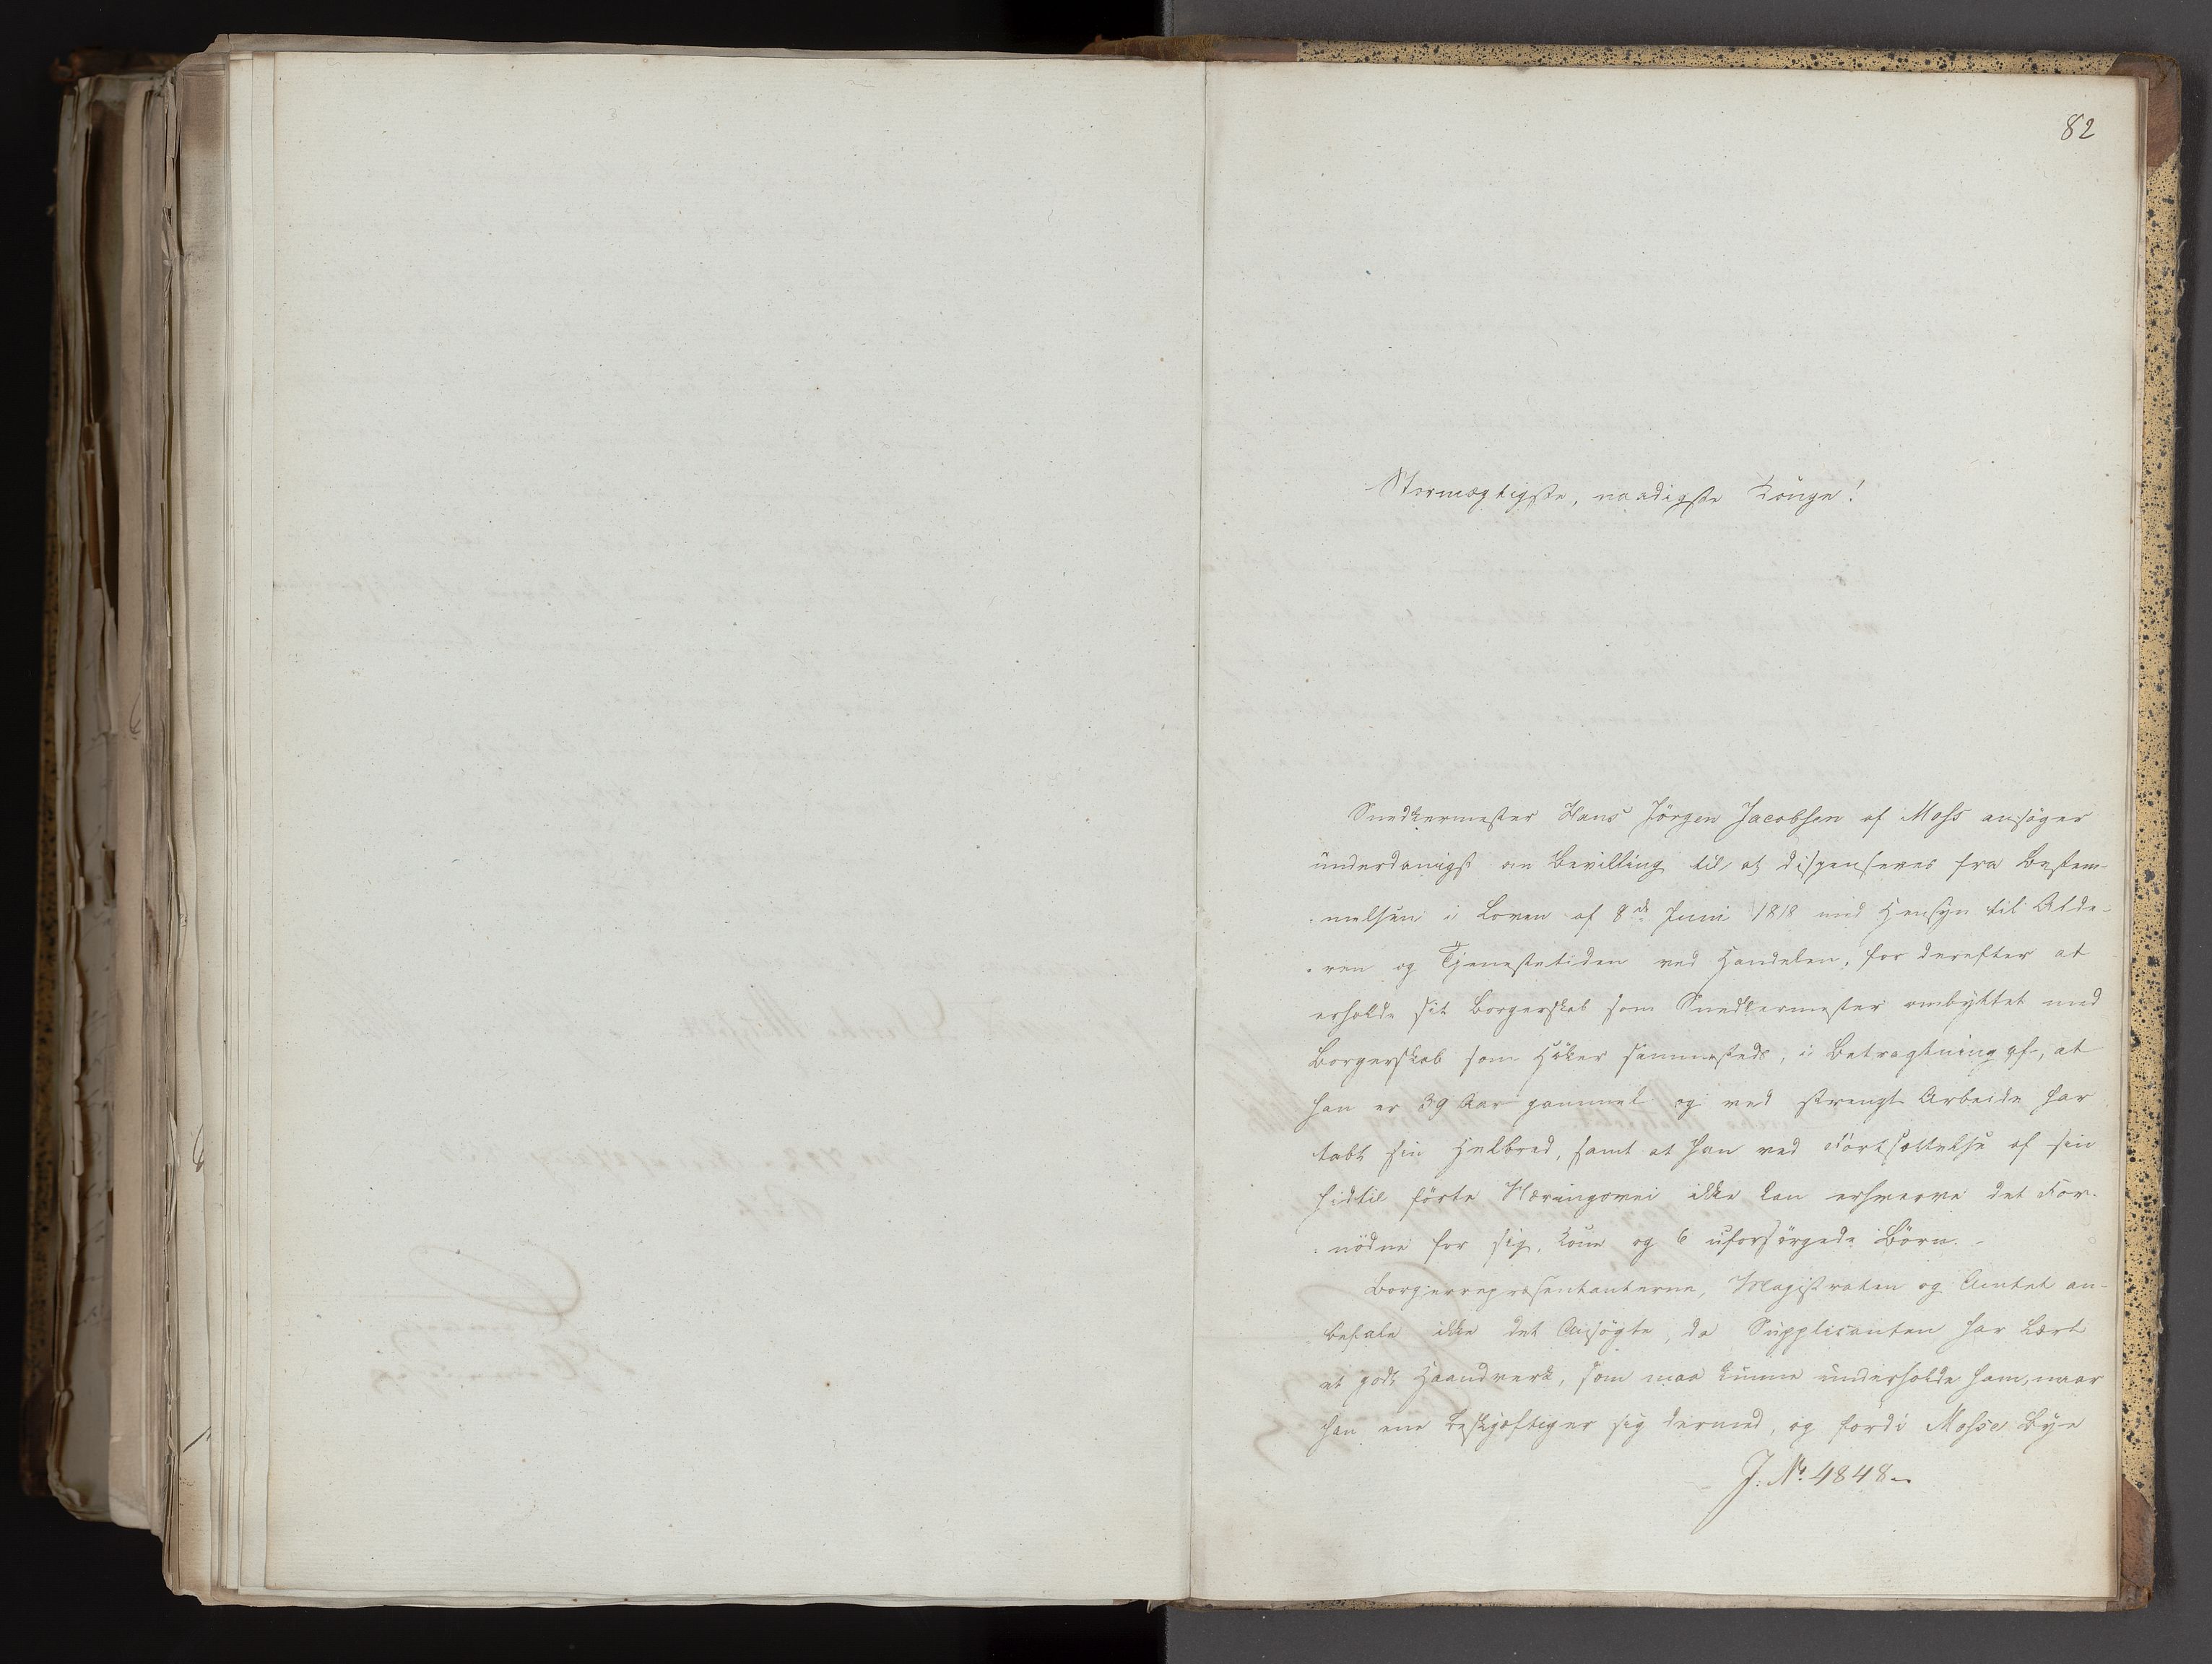 82
Stormægtigste, naadigste Konge!
Snedkermester Hans Jörgen Jacobsen af Moss ansöger
underdanigst om Bevilling til at dispenseres fra Bestem-
melsen i Loven af 8de Juni 1818 med Hensyn til Alde-
ren og Tjenestetiden ved Handelen, for derefter at
erholde sit Borgerskab som Snedkermester ombyttet med
Borgerskab som Höker sammesteds, i Betragtning af, at
han er 39 Aar gammel og ved strengt Arbeide har
tabt sin Helbred, samt at han ved Fortsættelse af sin
hidtil förte Næringsvei ikke kan erhverve det For-
nödne for sig, Kone og 6 uforsörgede Börn. -
Borgerrepræsentanterne, Magistraten og Amtet an-
befale ikke det Ansögte, da Supplicanten har lært
et godt Haandverk, som maa kunne underholde ham, naar
han ene beskjæftiger sig dermed, og fordi Mosse Bye
J. No. 4848-